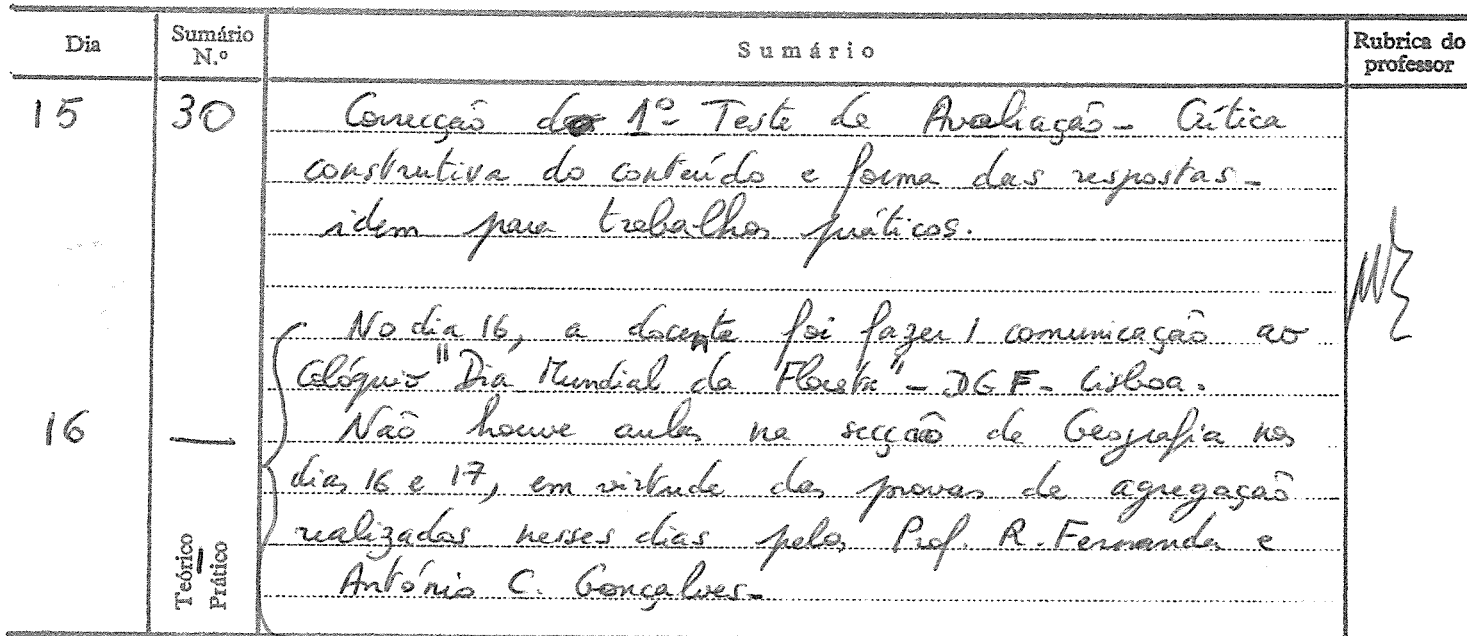 Dia Sumário N.º Sumário Rubrica do professor
15 30 Correcção do 1º Teste de Avaliação - Crítica
construtiva do conteúdo e forma das respostas -
idem para trabalhos práticos.
No dia 16, a docente foi fazer 1 comunicação ao
Colóquio "Dia Mundial da Floresta" - DGF - Lisboa.
16 — Não houve aulas na secção de Geografia nos
dias 16 e 17, em virtude das provas de agregação
realizadas nesses dias pelos Prof. R. Fernanda e
António C. Gonçalves -
Teórico
Prático